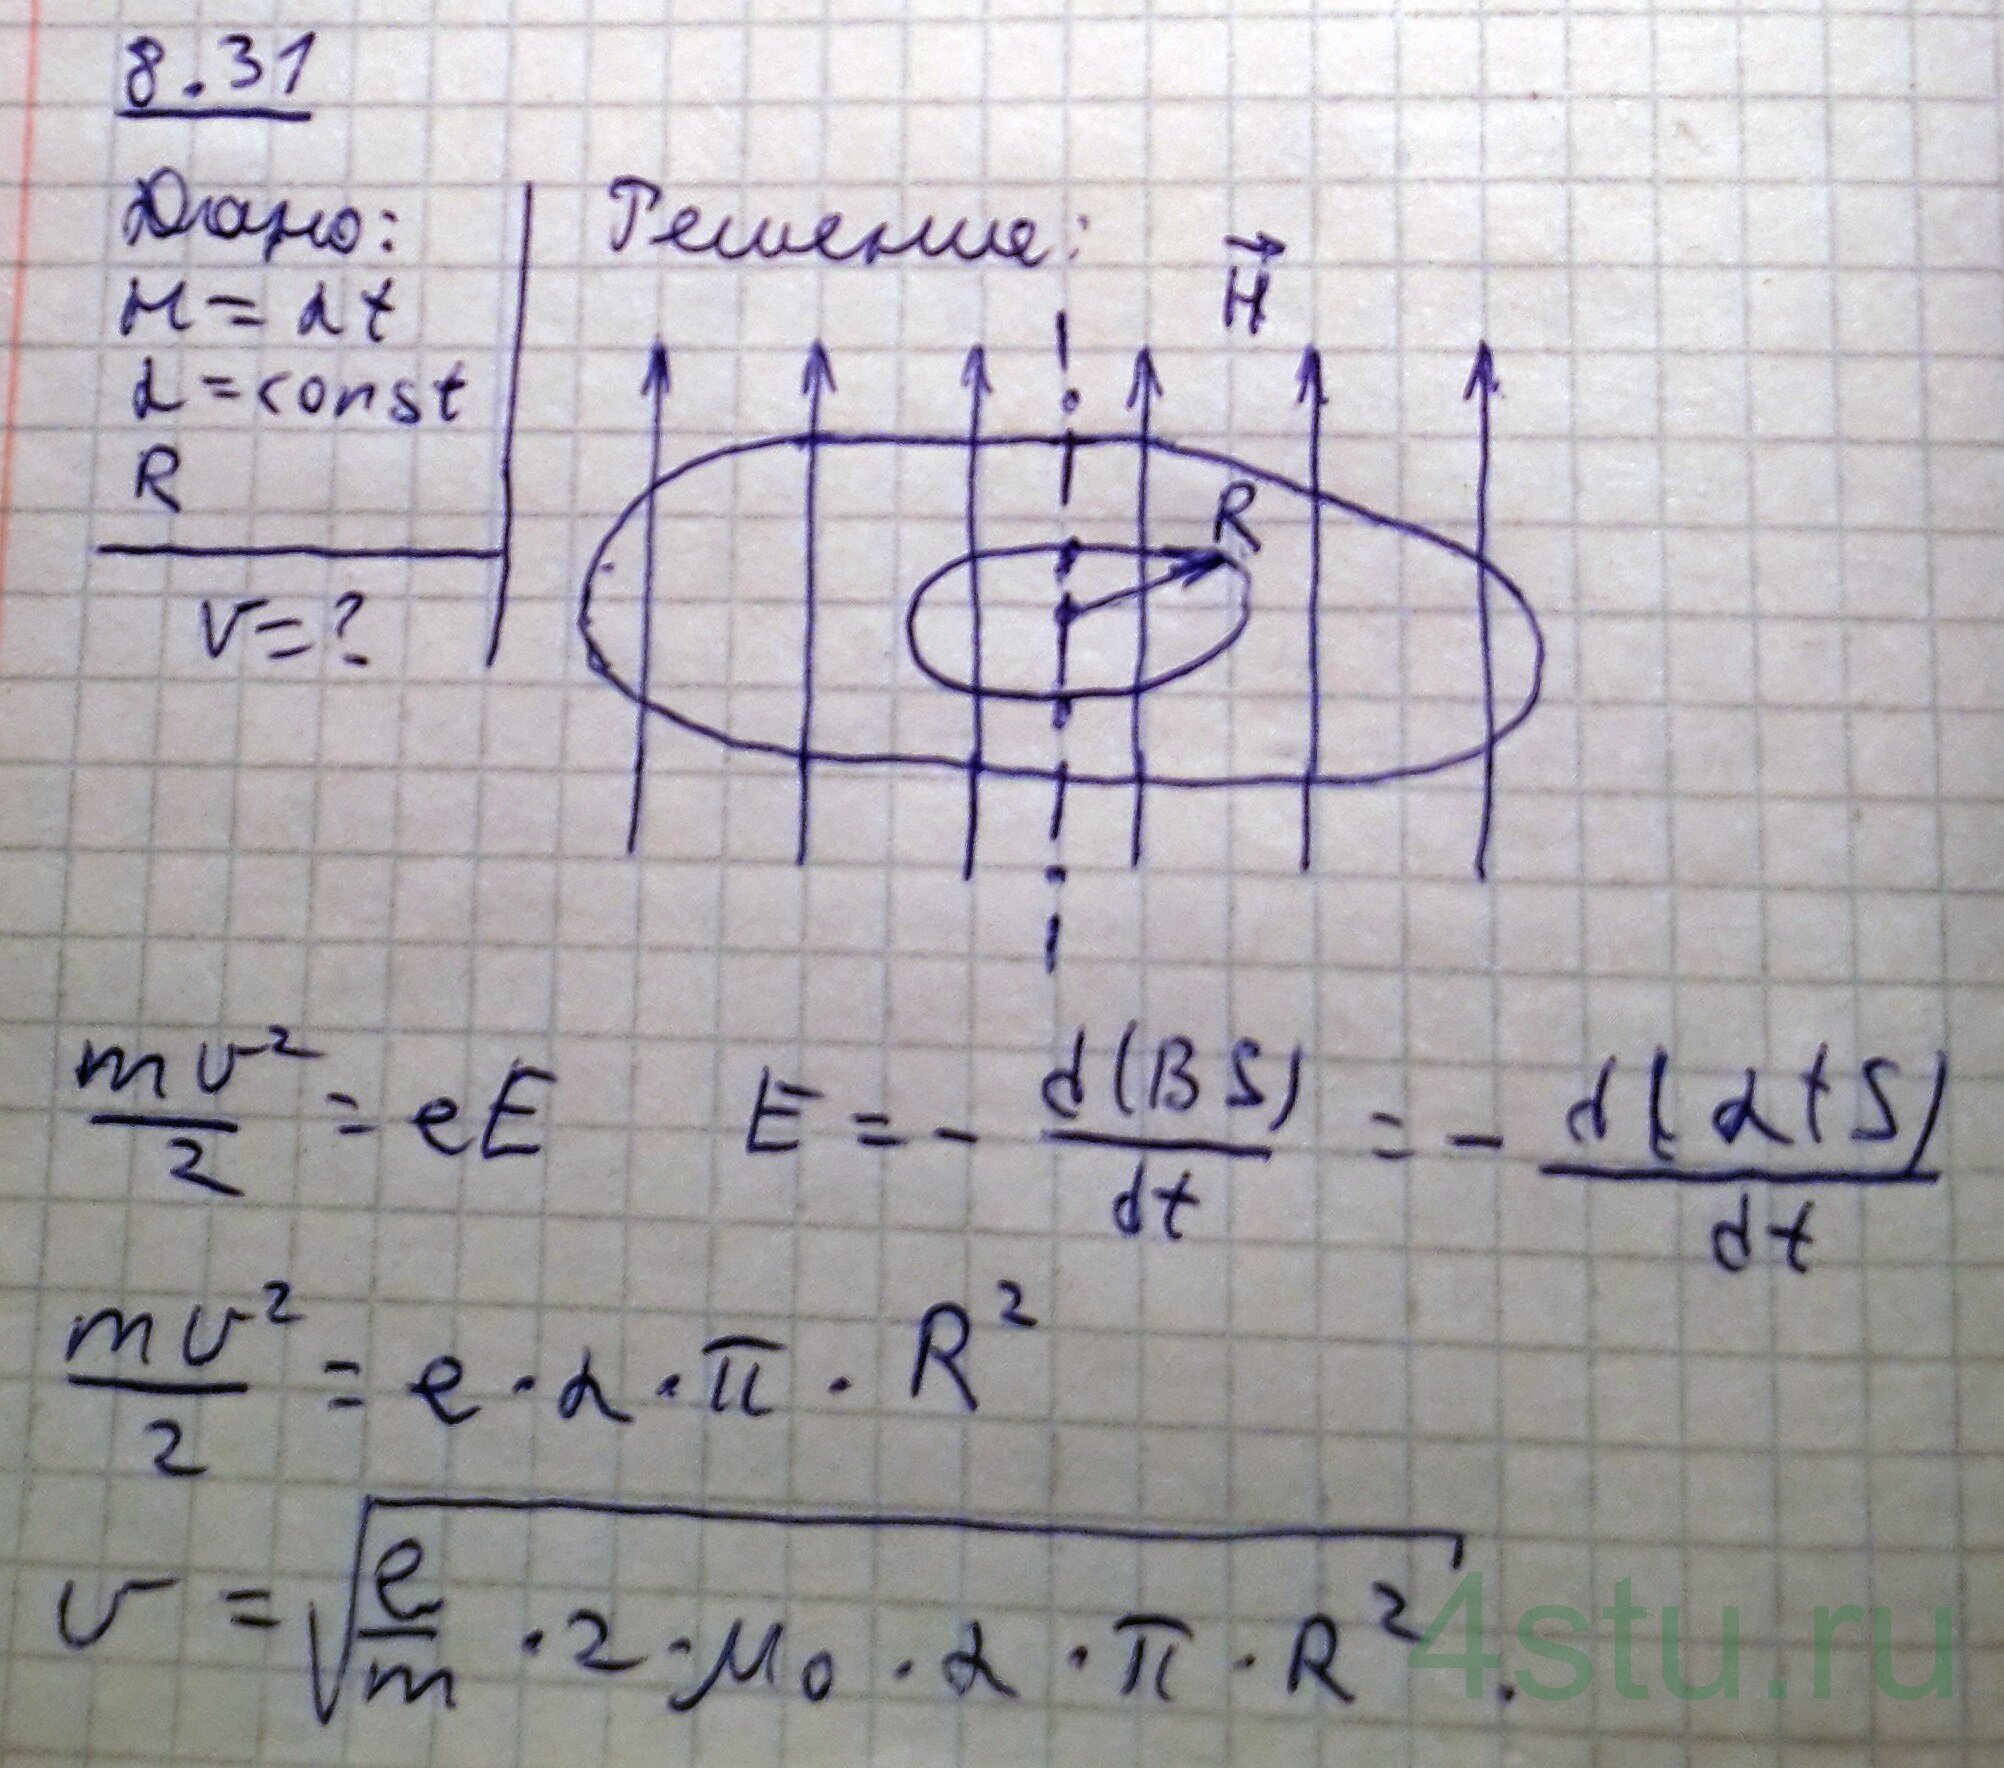 8.31
Дано:
H = αt
α = const
R
v = ?
Решение:
H⃗
R
mv²/2 = eE    E = - d(BS)/dt = - d(αtS)/dt
mv²/2 = e · α · π · R²
v = √(e/m · 2 · μ₀ · α · π · R²).
4stu.ru